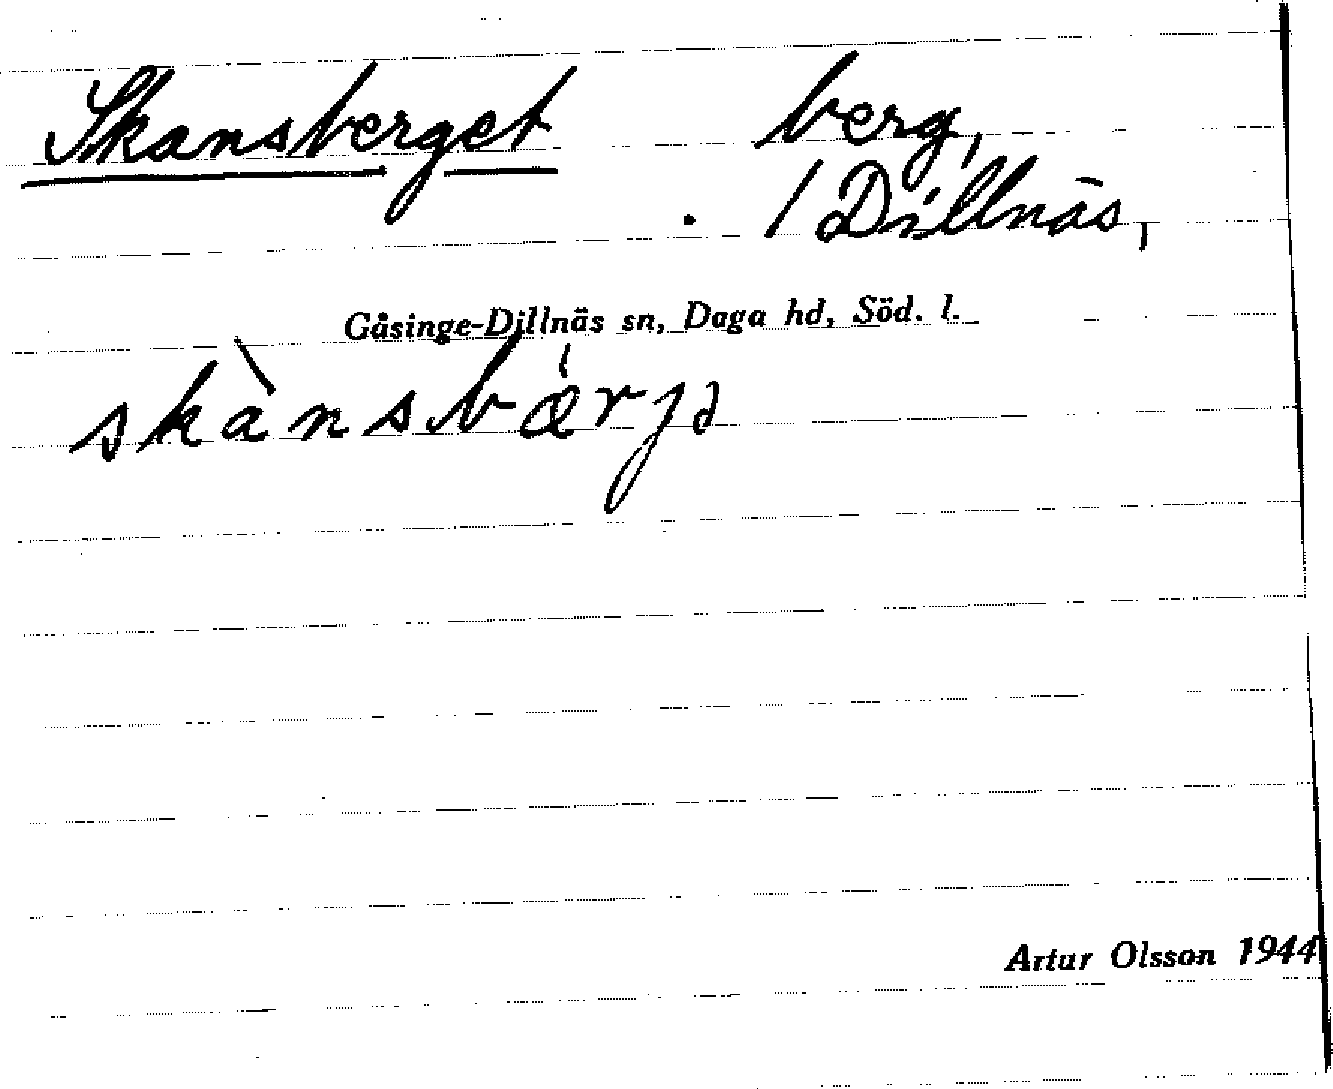 Skansberget berg,
/ Dillnäs,
Gåsinge-Dillnäs sn, Daga hd, Söd. l.
skànsbærjə
Artur Olsson 1944